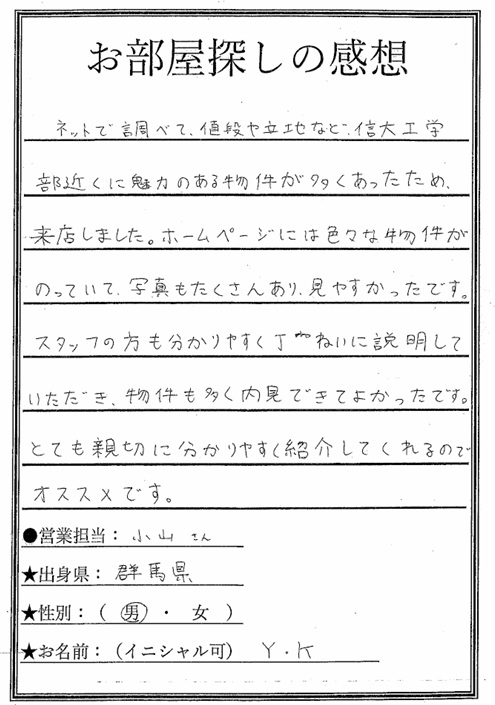 お部屋探しの感想
ネットで調べて、値段や立地など、信大工学
部近くに魅力のある物件が多くあったため、
来店しました。ホームページには色々な物件が
のっていて、写真もたくさんあり、見やすかったです。
スタッフの方も分かりやすく丁ねいに説明して
いただき、物件も多く内見できてよかったです。
とても親切に分かりやすく紹介してくれるので
オススメです。
●営業担当：小山さん
★出身県：群馬県
★性別：（ 男 ・ 女 ）
★お名前：（イニシャル可） Y.K